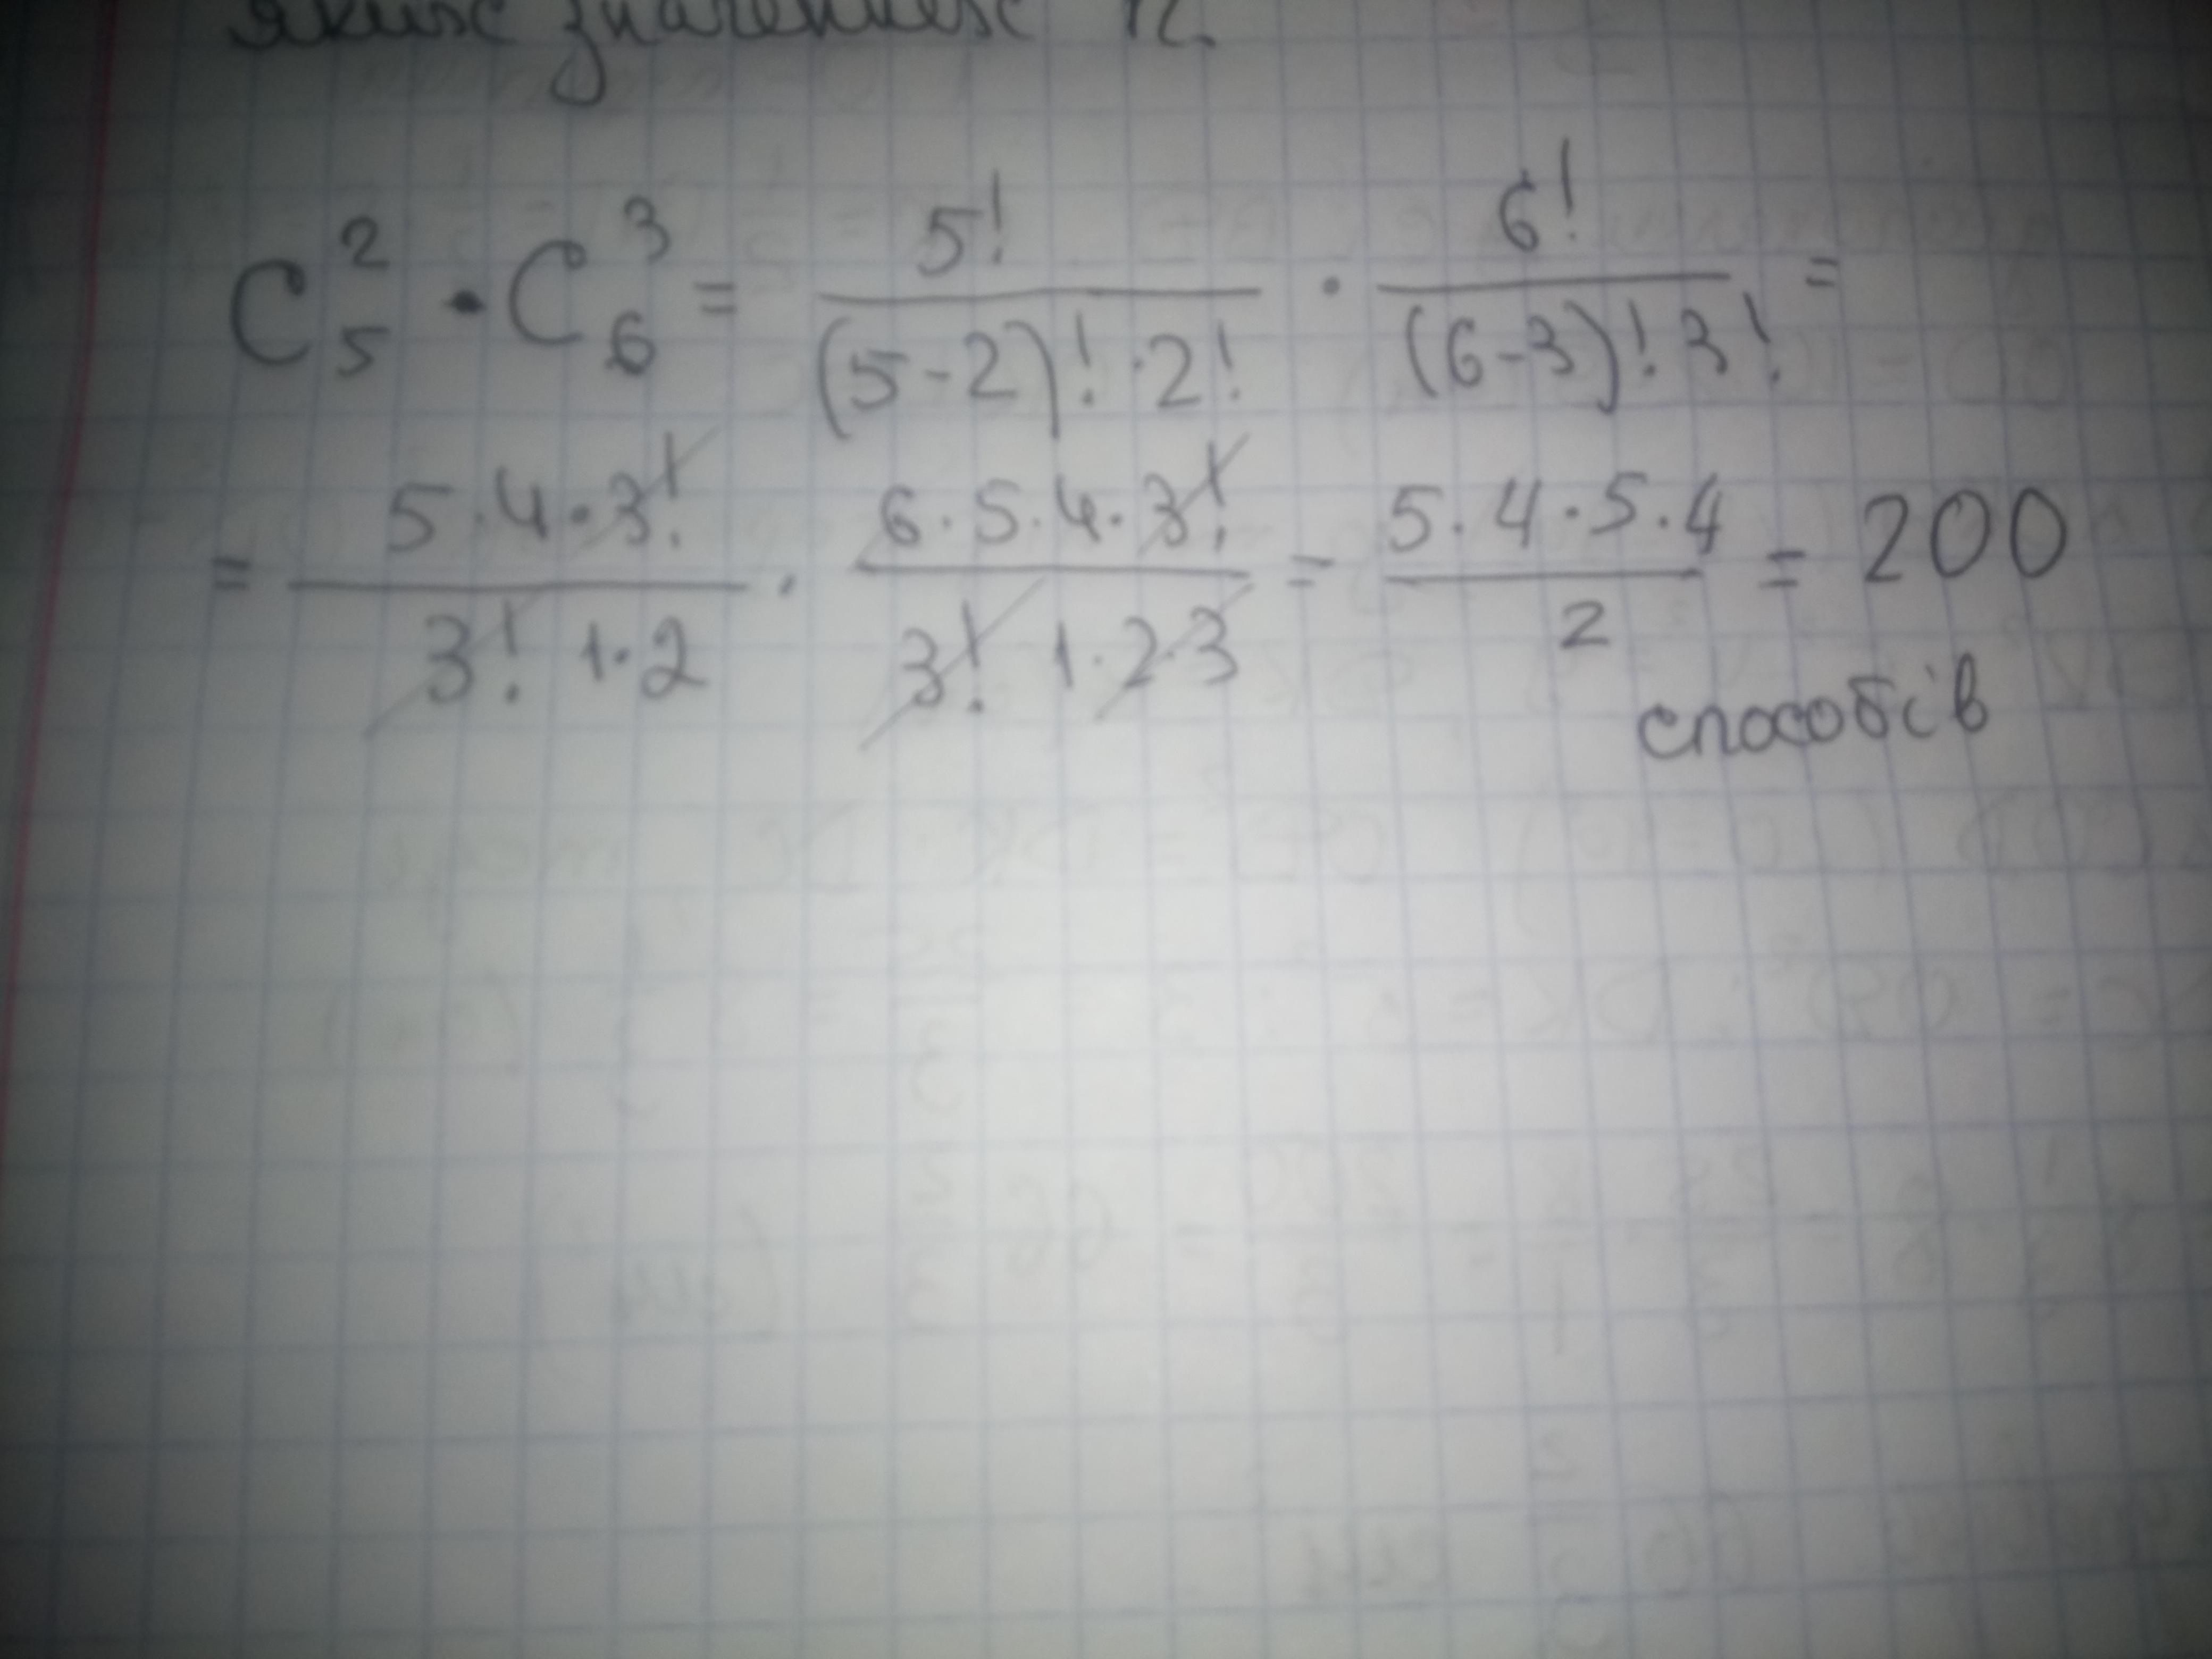 значеннях n.
C₅² · C₆³ = 5!/((5-2)! · 2!) · 6!/((6-3)! 3!) =
= (5 · 4 · 3!)/(3! 1 · 2) · (6 · 5 · 4 · 3!)/(3! 1 · 2 · 3) = (5 · 4 · 5 · 4)/2 = 200
способів